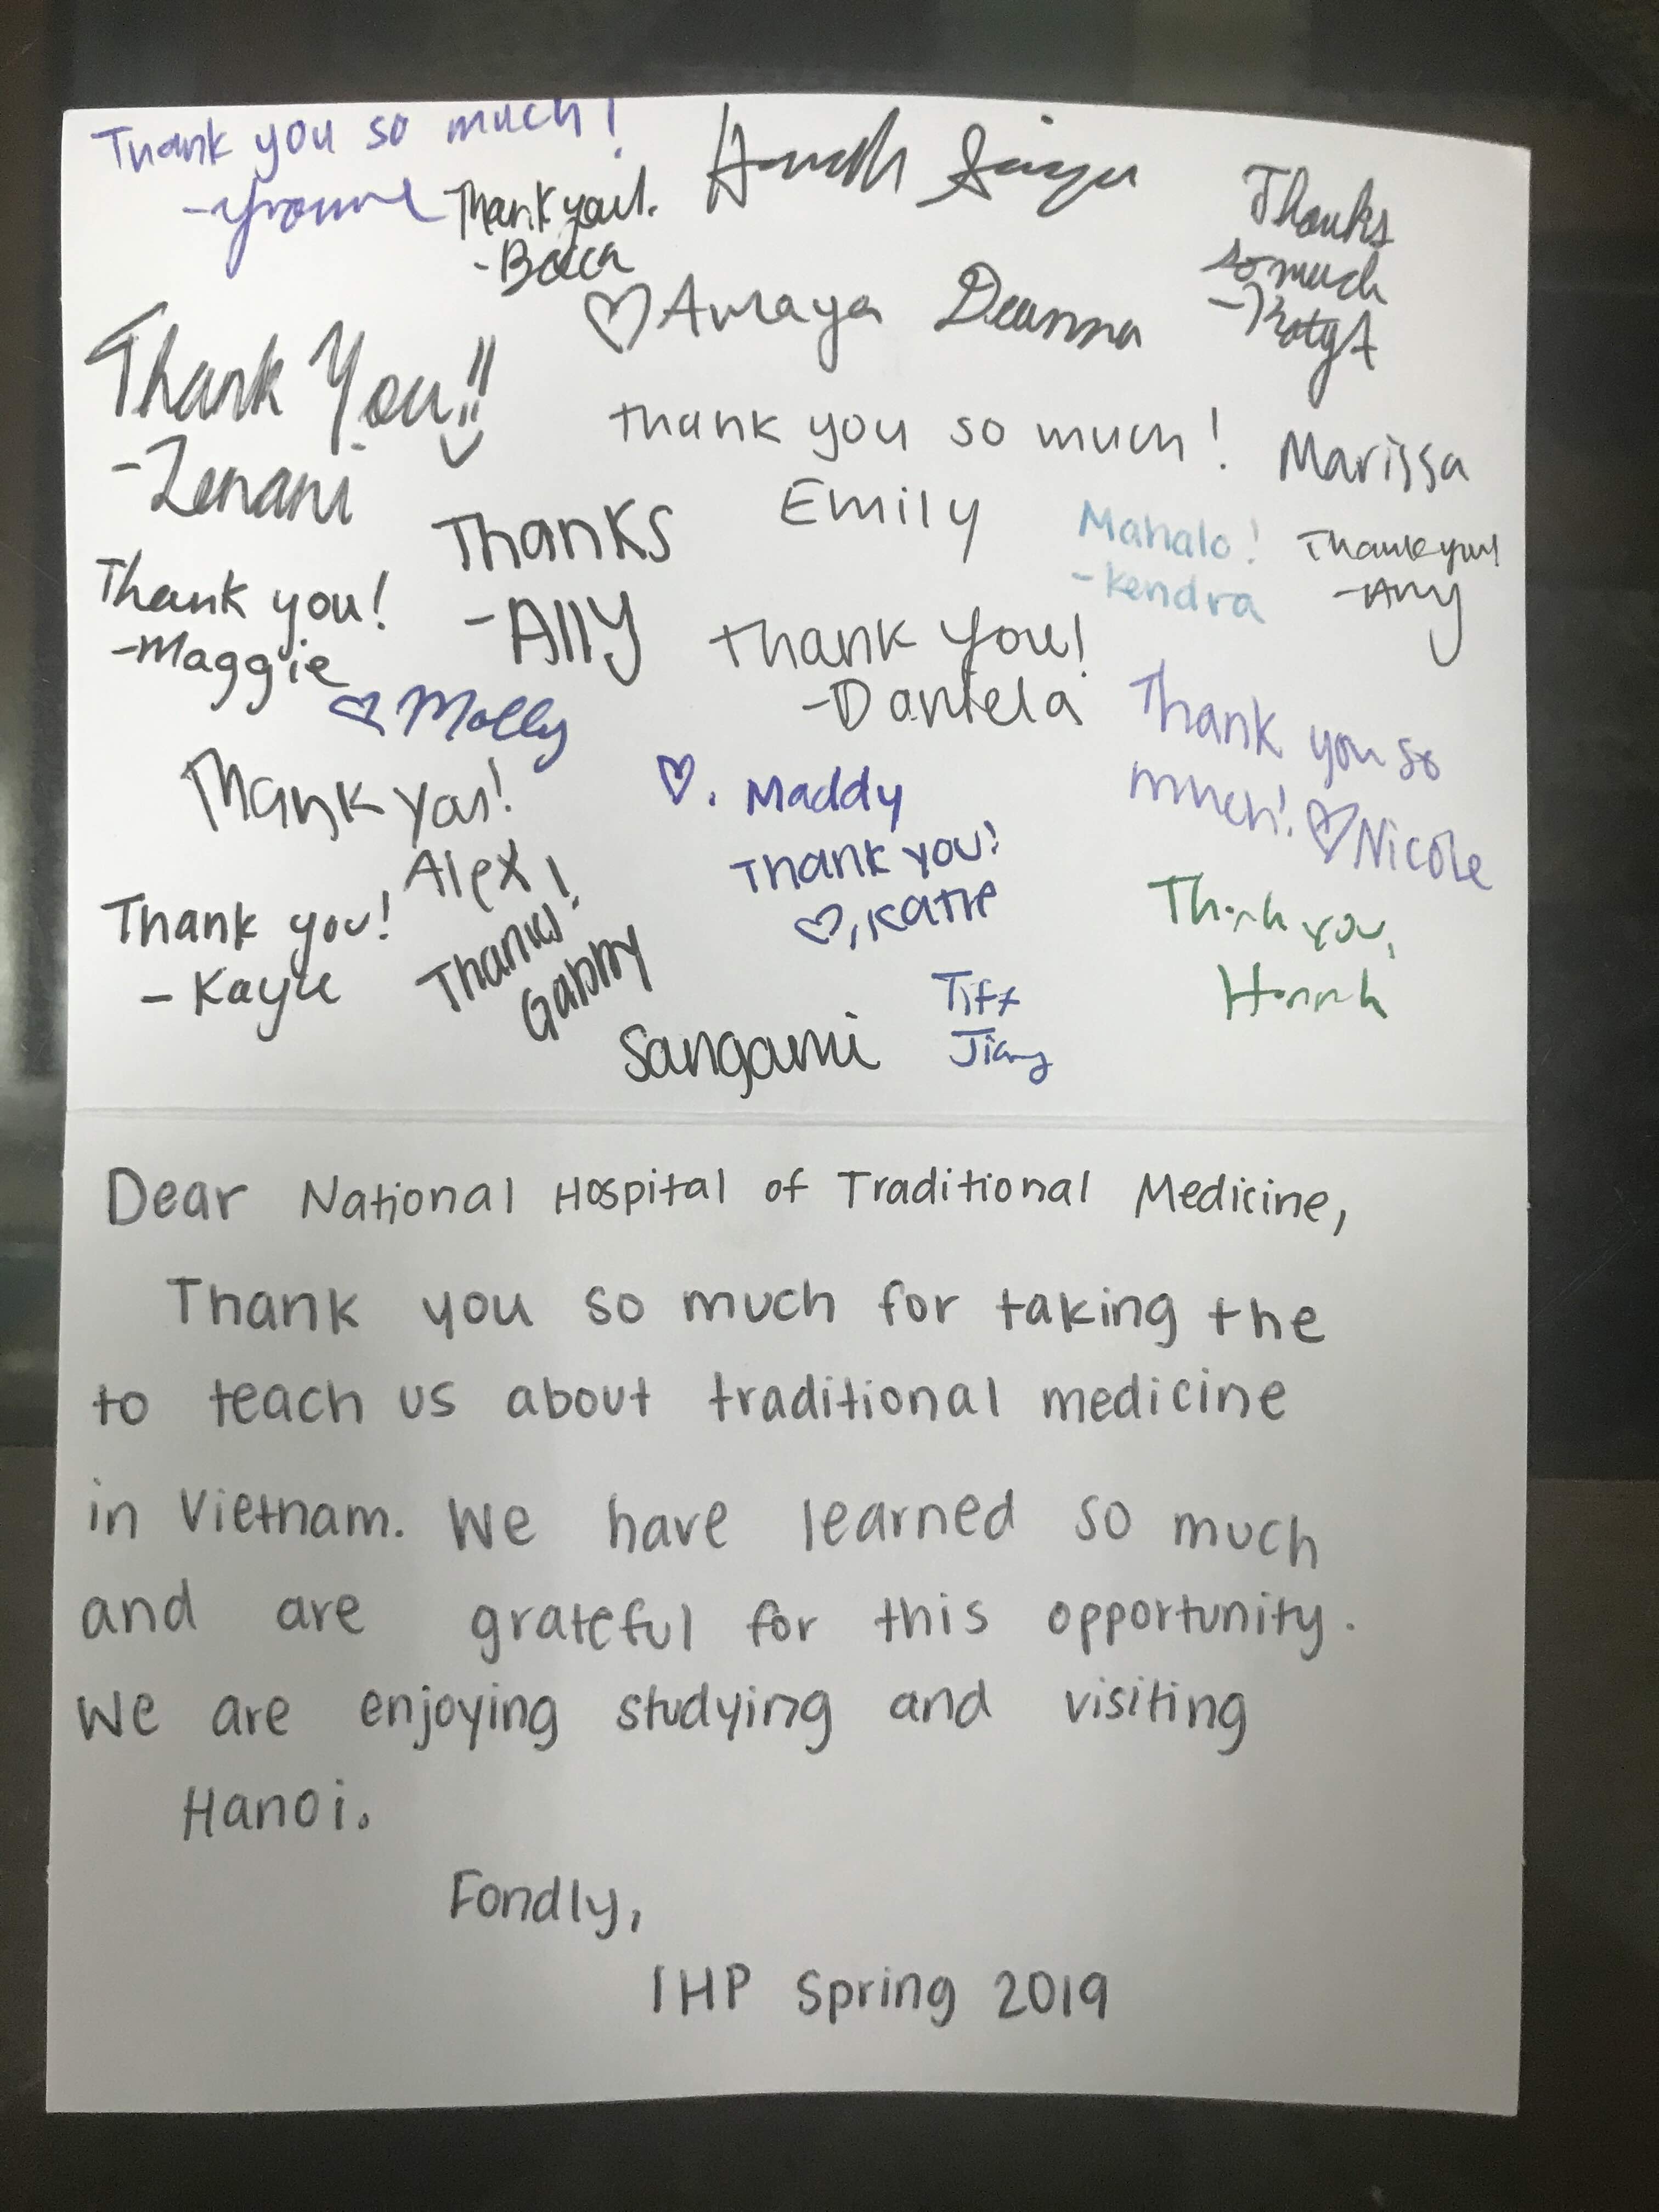 Thank you so much!
-Yvonne
Thank you!
-Becca
Thanks
so much
♡Amaya
Deanna
Thank You!!
-Zenani
thank you so much!
Emily
Marissa
Thanks
-Ally
Mahalo!
-Kendra
Thank you!
-Amy
Thank you!
-Maggie
♡ Molly
Thank you!
-Daniela
Thank you so
much! ♡Nicole
Thank you!
Alex
♡. Maddy
Thank you!
♡, Katie
Thank you!
- Kaylie
Thanks!
Gabby
Thank you,
Hannah
Tiff
Jiang
Sangami
Dear National Hospital of Traditional Medicine,
Thank you so much for taking the
to teach us about traditional medicine
in Vietnam. We have learned so much
and are grateful for this opportunity.
We are enjoying studying and visiting
Hanoi.
Fondly,
IHP Spring 2019